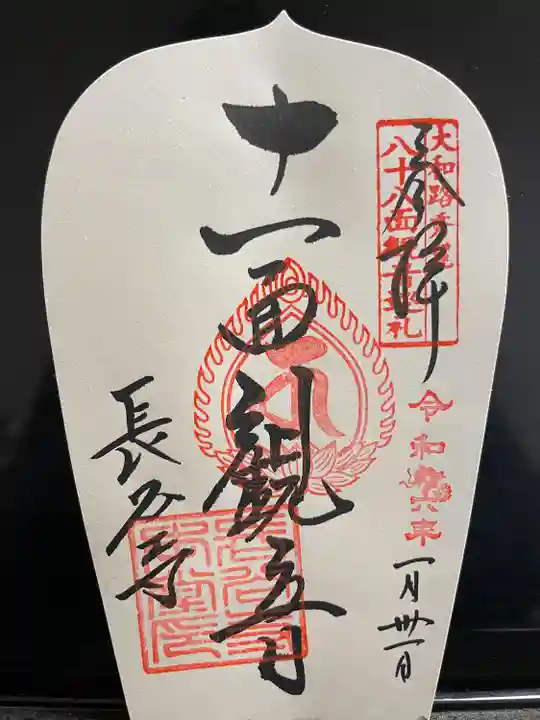 奉拝
大和路秀麗
八十八面観音巡礼
令和六年
一月卅一日
十一面観音
長谷寺